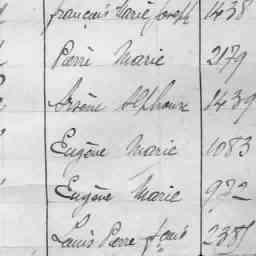 françois Marie Joseph 1438
Pierre Marie 2179
Arsène Alphonse 1439
Eugène Marie 1083
Eugène Marie 922
Louis Pierre